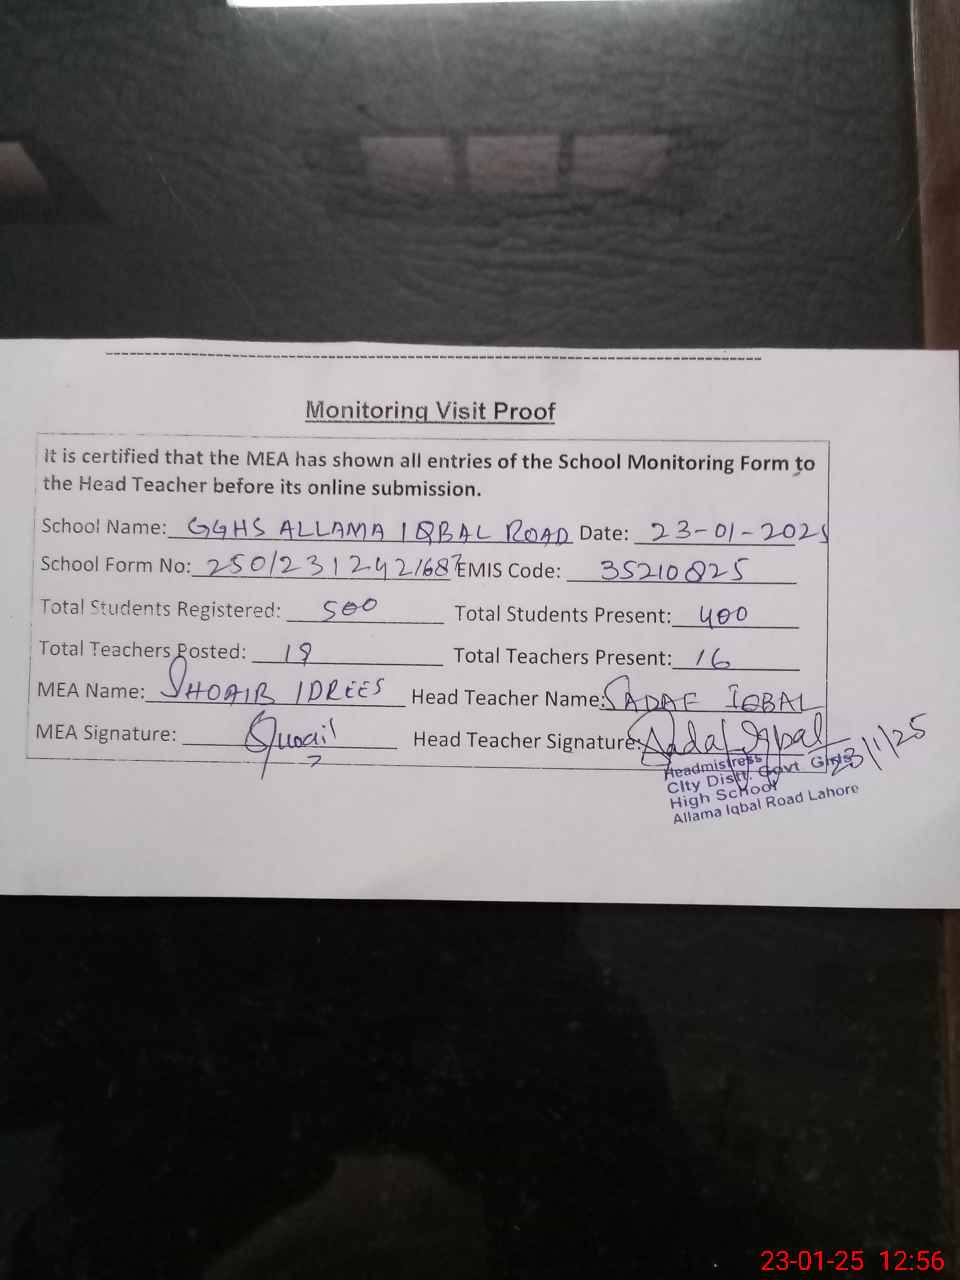 Monitoring Visit Proof
It is certified that the MEA has shown all entries of the School Monitoring Form to
the Head Teacher before its online submission.
School Name: GGHS ALLAMA IQBAL ROAD Date: 23-01-2025
School Form No: 25012312421687 EMIS Code: 35210825
Total Students Registered: 500 Total Students Present: 400
Total Teachers Posted: 19 Total Teachers Present: 16
MEA Name: SHOAIB IDREES Head Teacher Name: SADAF IQBAL
MEA Signature: Head Teacher Signature: Sadaf Iqbal
23/1/25
Headmistress
City Distt. Govt Girls
High School
Allama Iqbal Road Lahore
23-01-25 12:56